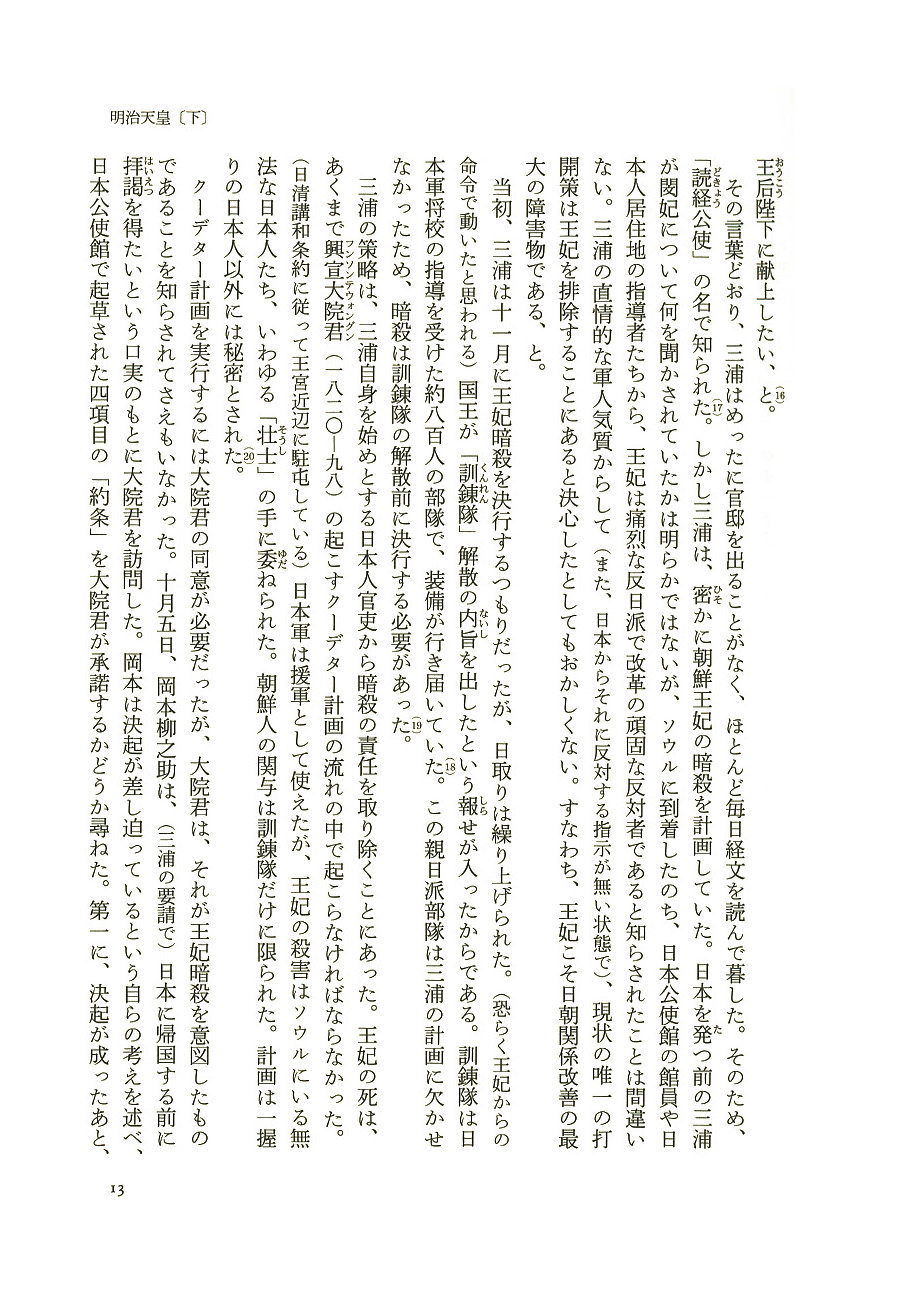 明治天皇〔下〕
王后陛下に献上したい、と。(16)
その言葉どおり、三浦はめったに官邸を出ることがなく、ほとんど毎日経文を読んで暮した。そのため、
「読経公使」の名で知られた。(17)しかし三浦は、密かに朝鮮王妃の暗殺を計画していた。日本を発つ前の三浦
が閔妃について何を聞かされていたかは明らかではないが、ソウルに到着したのち、日本公使館の館員や日
本人居住地の指導者たちから、王妃は痛烈な反日派で改革の頑固な反対者であると知らされたことは間違い
ない。三浦の直情的な軍人気質からして（また、日本からそれに反対する指示が無い状態で）、現状の唯一の打
開策は王妃を排除することにあると決心したとしてもおかしくない。すなわち、王妃こそ日朝関係改善の最
大の障害物である、と。
当初、三浦は十一月に王妃暗殺を決行するつもりだったが、日取りは繰り上げられた。（恐らく王妃からの
命令で動いたと思われる）国王が「訓錬隊」解散の内旨を出したという報せが入ったからである。訓錬隊は日
本軍将校の指導を受けた約八百人の部隊で、装備が行き届いていた。(18)この親日派部隊は三浦の計画に欠かせ
なかったため、暗殺は訓錬隊の解散前に決行する必要があった。(19)
三浦の策略は、三浦自身を始めとする日本人官吏から暗殺の責任を取り除くことにあった。王妃の死は、
あくまで興宣大院君（一八二〇―九八）の起こすクーデター計画の流れの中で起こらなければならなかった。
（日清講和条約に従って王宮近辺に駐屯している）日本軍は援軍として使えたが、王妃の殺害はソウルにいる無
法な日本人たち、いわゆる「壮士」の手に委ねられた。朝鮮人の関与は訓錬隊だけに限られた。計画は一握
りの日本人以外には秘密とされた。(20)
クーデター計画を実行するには大院君の同意が必要だったが、大院君は、それが王妃暗殺を意図したもの
であることを知らされてさえもいなかった。十月五日、岡本柳之助は、（三浦の要請で）日本に帰国する前に
拝謁を得たいという口実のもとに大院君を訪問した。岡本は決起が差し迫っているという自らの考えを述べ、
日本公使館で起草された四項目の「約条」を大院君が承諾するかどうか尋ねた。第一に、決起が成ったあと、
13